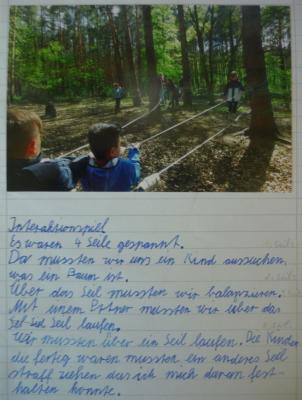 Interaktionspiel
Es waren 4 Seile gespannt.
Da mussten wir uns ein Kind aussuchen,
was ein Baum ist.
Über das Seil mussten wir balanzieren.
Mit einem mussten wir über das
Seil laufen.
Wir mussten über ein Seil laufen. Die Kinder
die fertig waren mussten ein anderes Seil
straff ziehen das ich mich daran fest-
halten konnte.